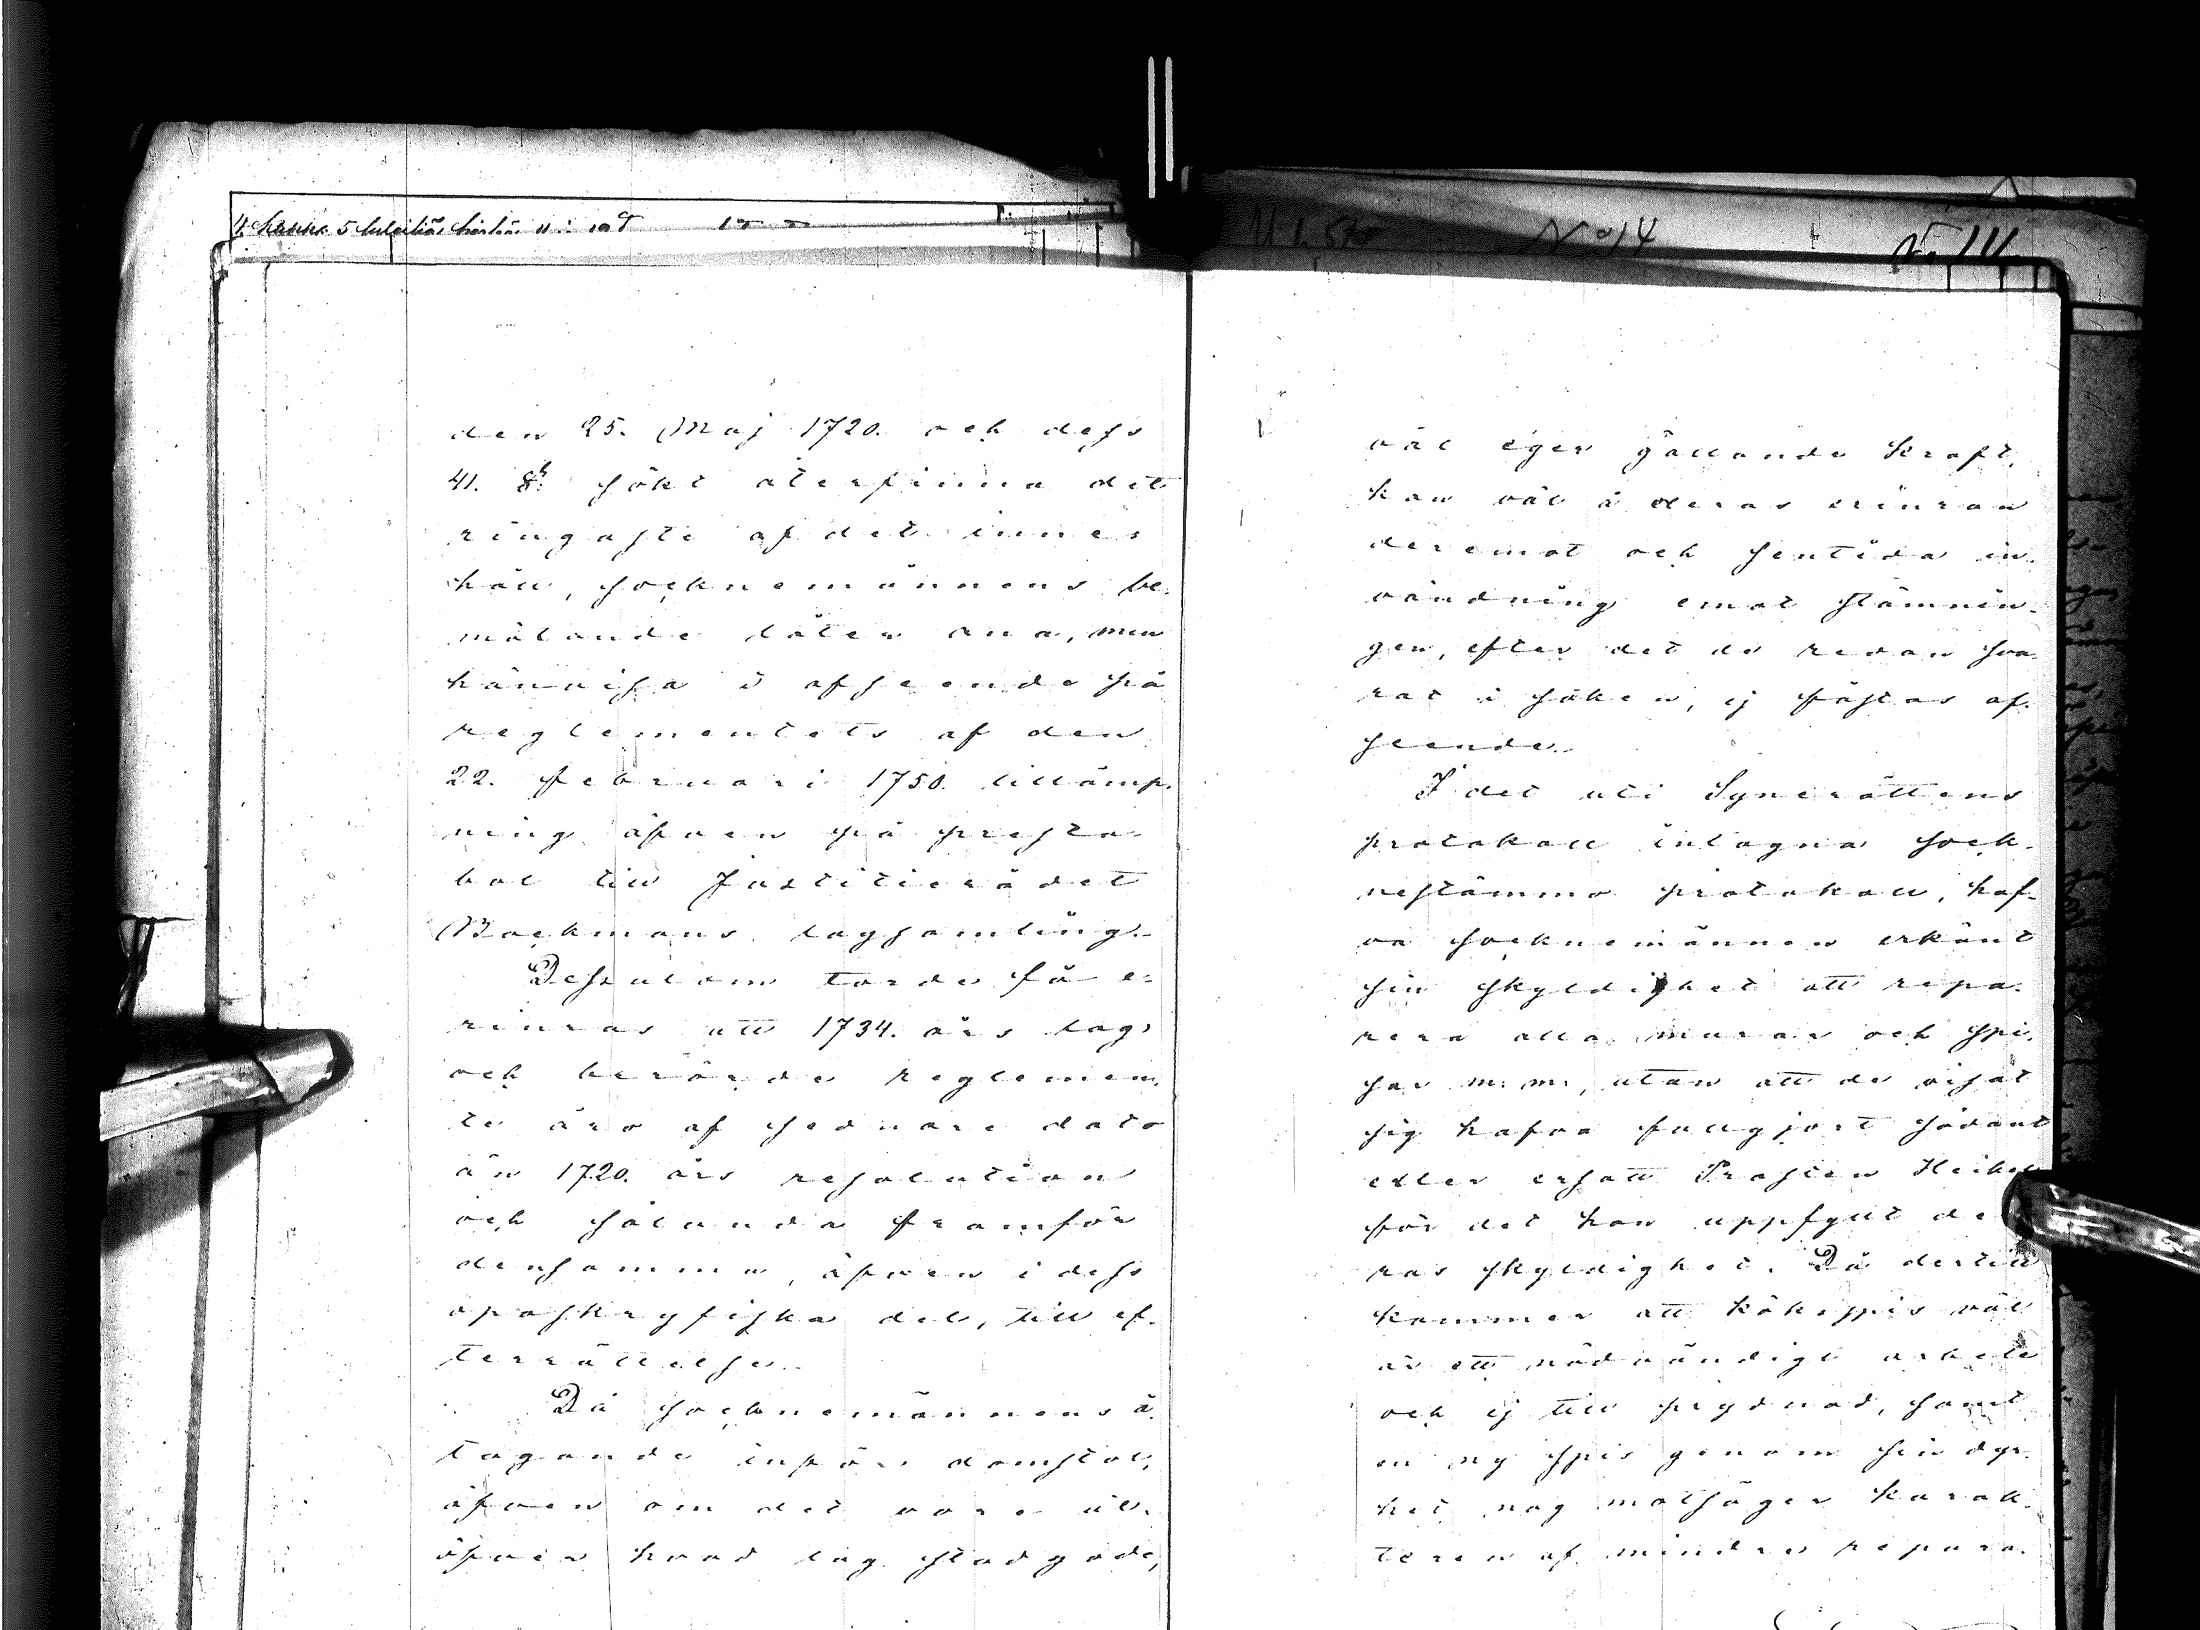 den 25. Maj 1720. och dess
41. §: sökt återfinna det
ringaste af det innes
håll, socknemännens be-
mälande låter ana, men
hänvisa i afseende på
reglementets af den
22. Februari 1750. tillämp-
ning äfven på presta-
bol till Justitierådet
Backmans lagsamling.
Dessutom torde få e-
rinras att 1734. års lag,
och berörde reglemen-
te äro af sednare dato
än 1720. års resolution
och sålunda framför
densamma, äfven i dess
apaskryfiska del, till ef-
terrättelse.
Då socknemännens å-
tagande inför domstol,
äfven om det vore ut-
öfver hvad lag stadgade,
väl eger gällande kraft,
kan väl å deras erinran
deremot och sentida in-
vändning emot stämnin-
gen, efter det de redan sva-
rat i saken, ej fästas af-
seende.
I det uti Synerättens
protokoll intagna sock-
nestämmo protokoll, haf-
va socknemännen erkänt
sin skyldighet att repa-
rera alla murar och spi-
sar m. m., utan att de visat
sig hafva fullgjort sådant
eller ersatt Prosten Heikel
för det han uppfyllt de
ras skyldighet. Då dertill
kommer att kökspis väl
är ett nödvändigt arbete
och ej till prydnad, samt
en ny spis genom sin dyr-
het nog motsäger karak-
teren af mindre repara-